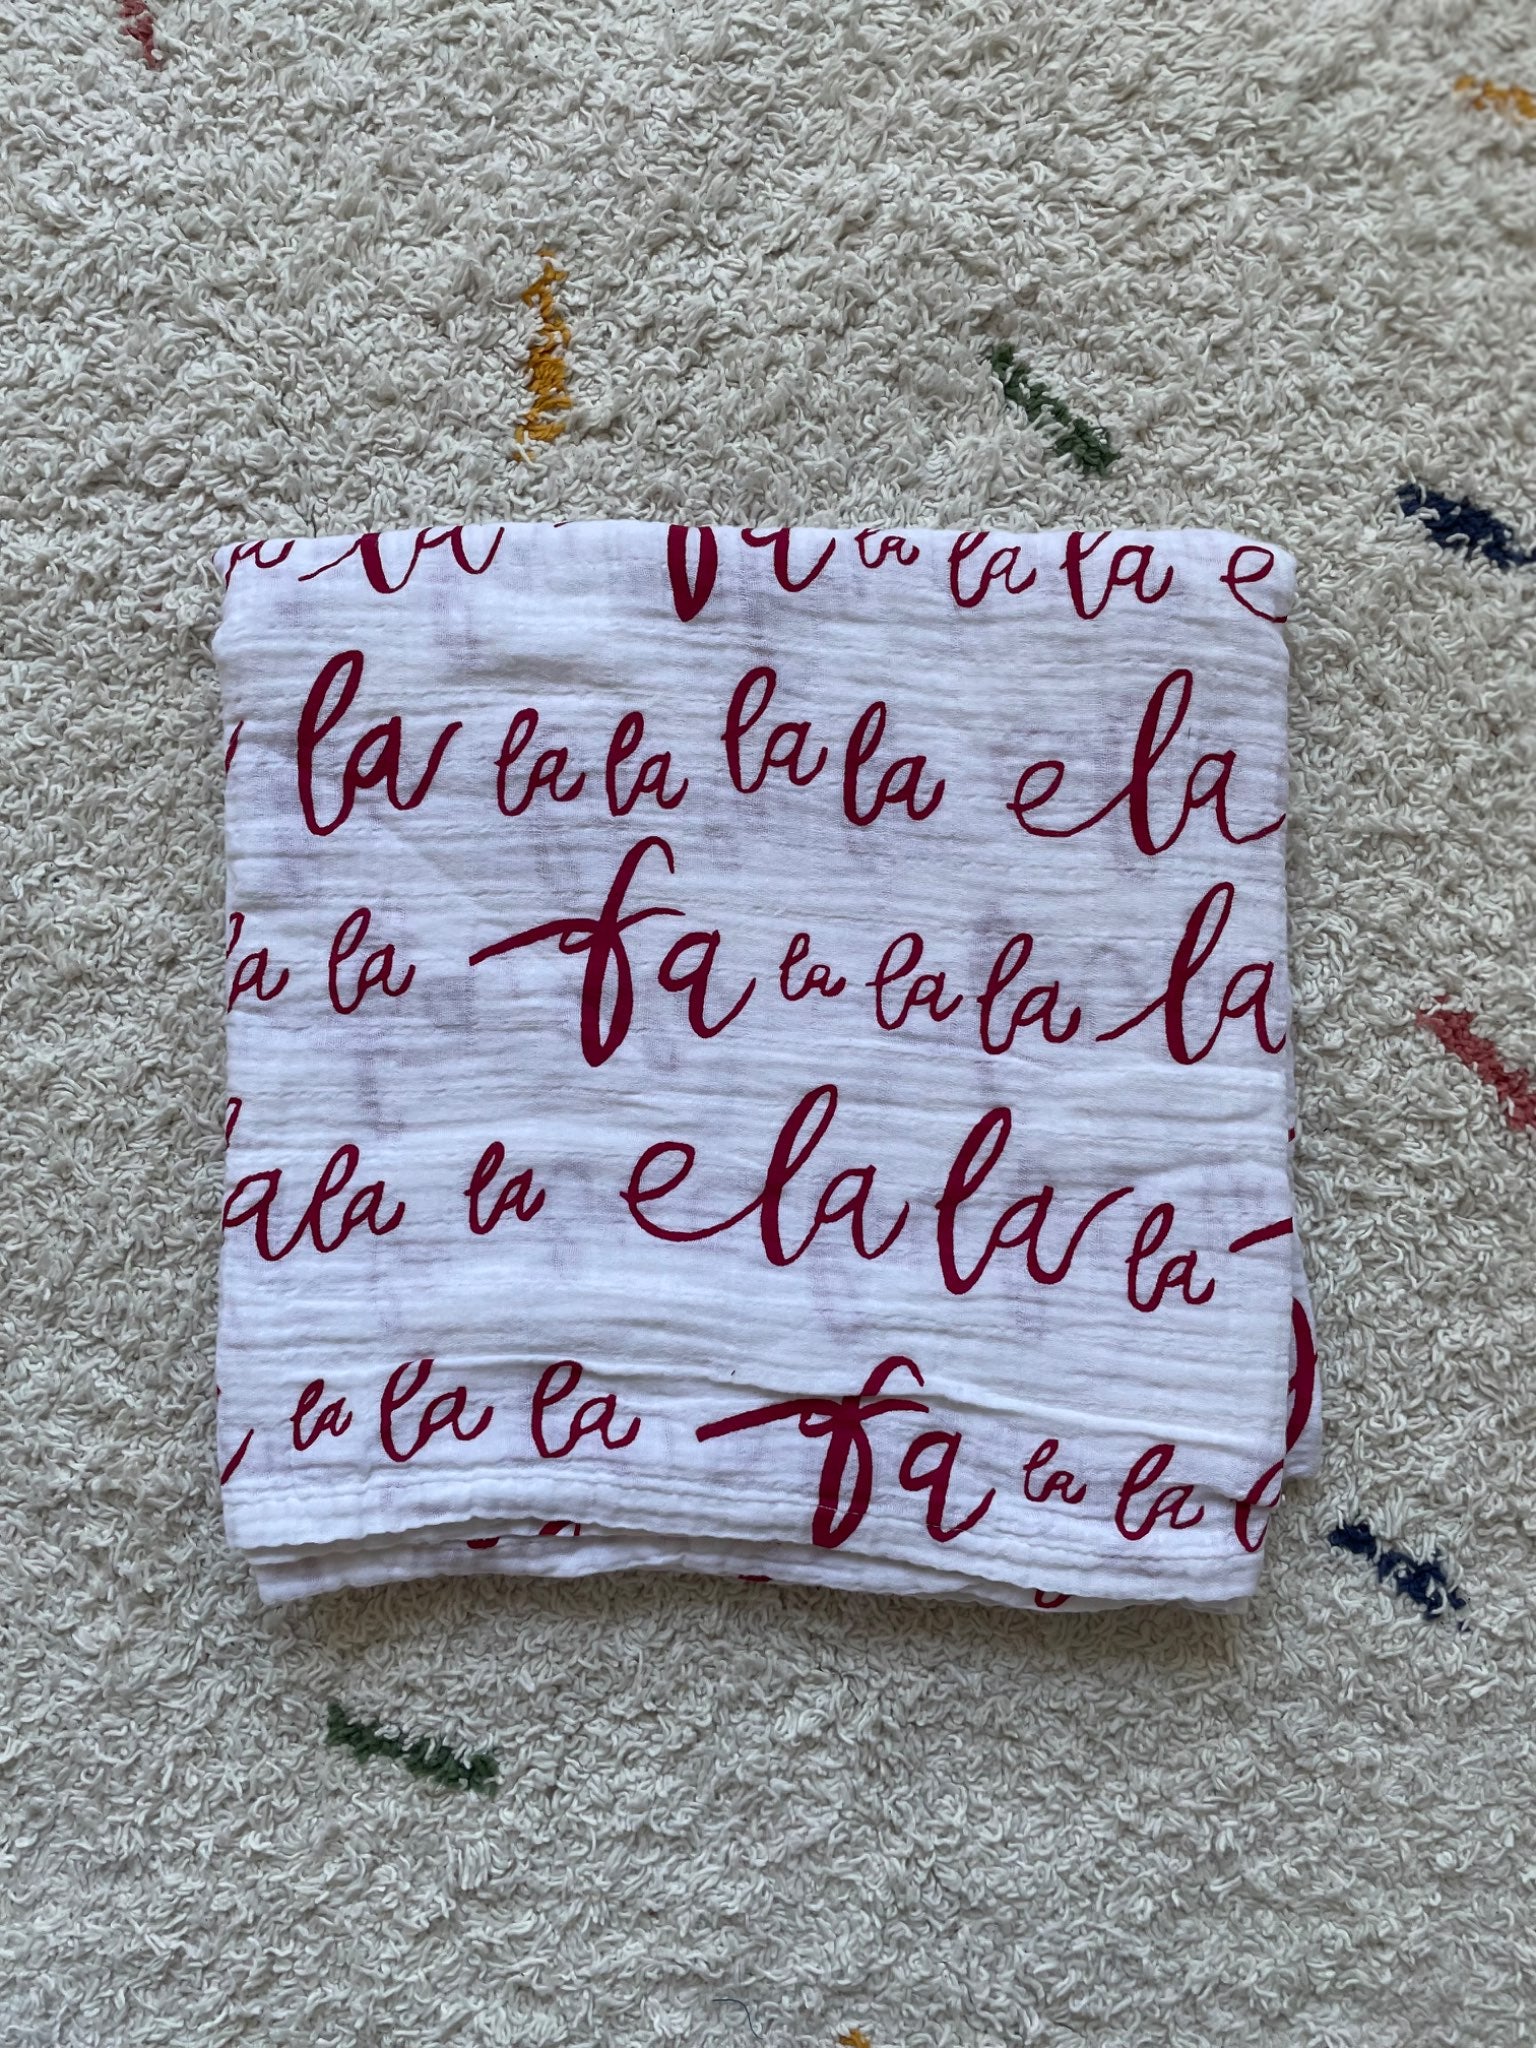 la la fa la la la e
la la la la la e la
la la fa la la la la
la la e la la la
la la la fa la la